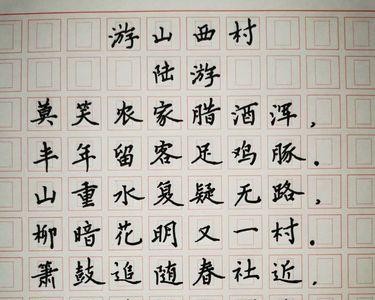 游山西村
陆游
莫笑农家腊酒浑，
丰年留客足鸡豚。
山重水复疑无路，
柳暗花明又一村。
箫鼓追随春社近，